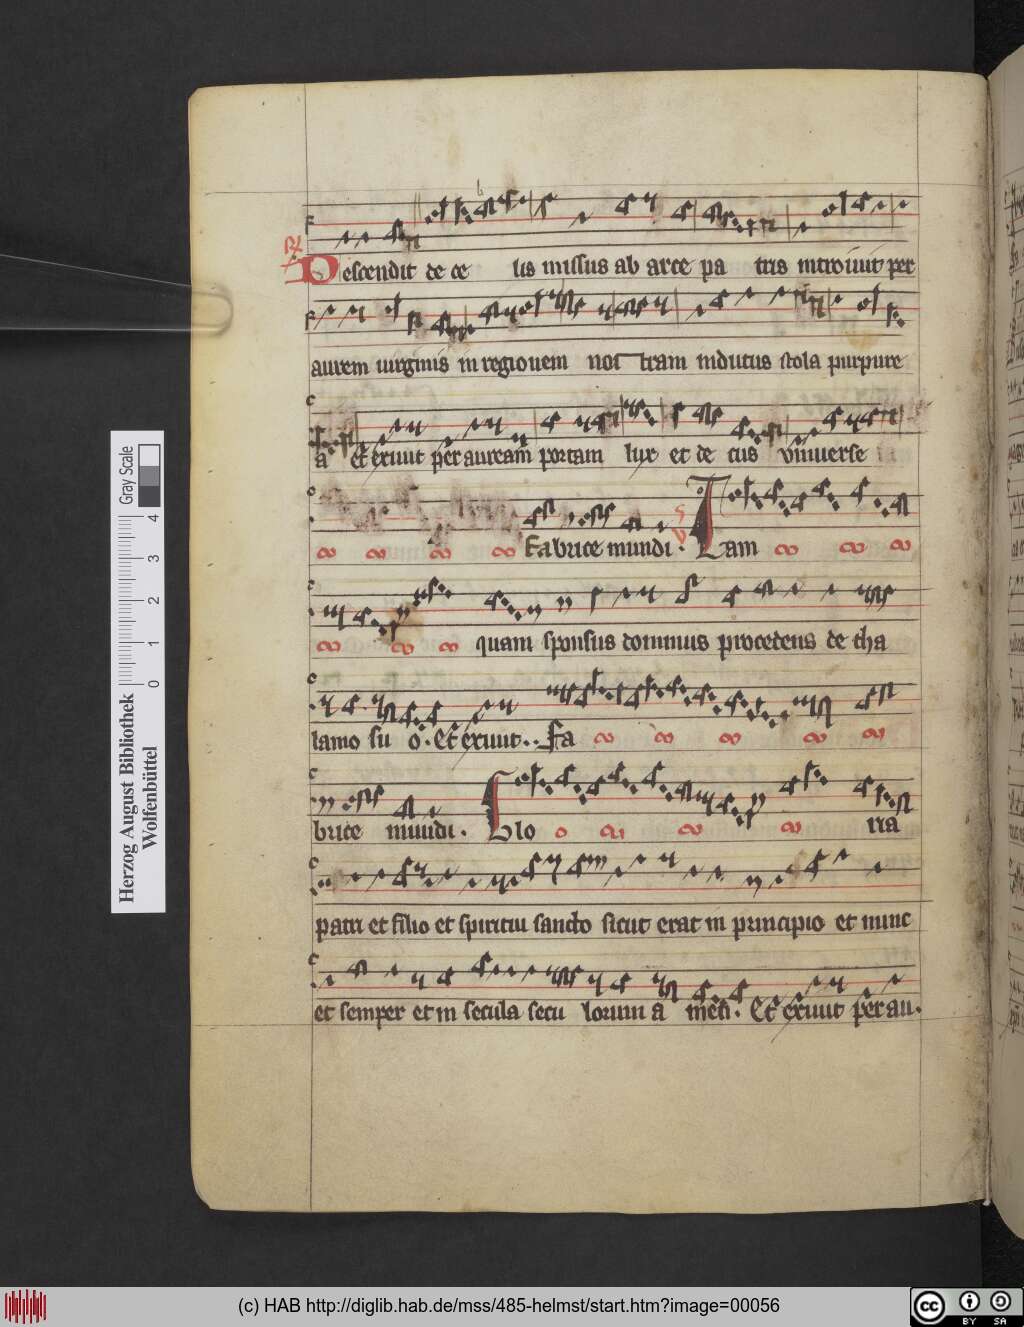 R
Descendit de ce lis missus ab arce pa tris introiuit per
aurem uirginis in regionem nos tram indutus stola purpure
a Et exiuit per auream portam lux et de cus vniuerse
Fabrice mundi . Tam
quam sponsus dominus procedens de tha
lamo su o . Et exiuit . . Fa
brice mundi . Glo ria
patri et filio et spiritui sancto sicut erat in principio et nunc
et semper et in secula secu lorum a men . Et exiuit per au .
Herzog August Bibliothek
Wolfenbüttel
0 1 2 3 4
Gray Scale
(c) HAB http://diglib.hab.de/mss/485-helmst/start.htm?image=00056
cc BY SA